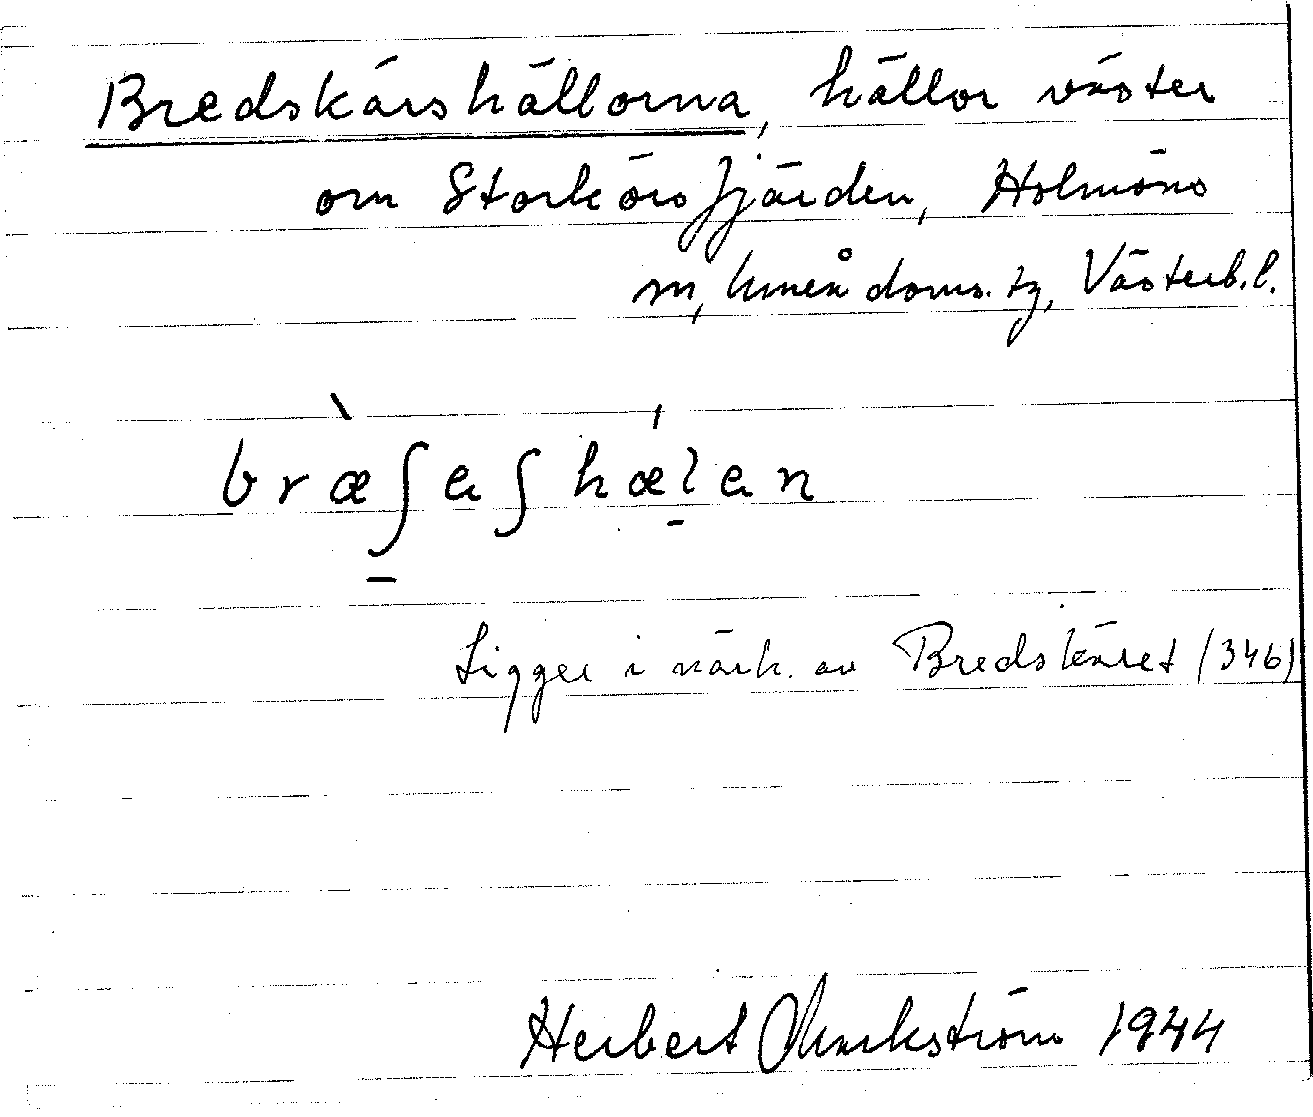 Bredskärshällorna, hällor väster
om Storkörsfjärden, Holmöns
sn, Umeå doms. tg, Västerb. l.
bræ̀ʃaʃhǽlan
Ligger i närh. av Bredskäret (346)
Herbert Markström 1944